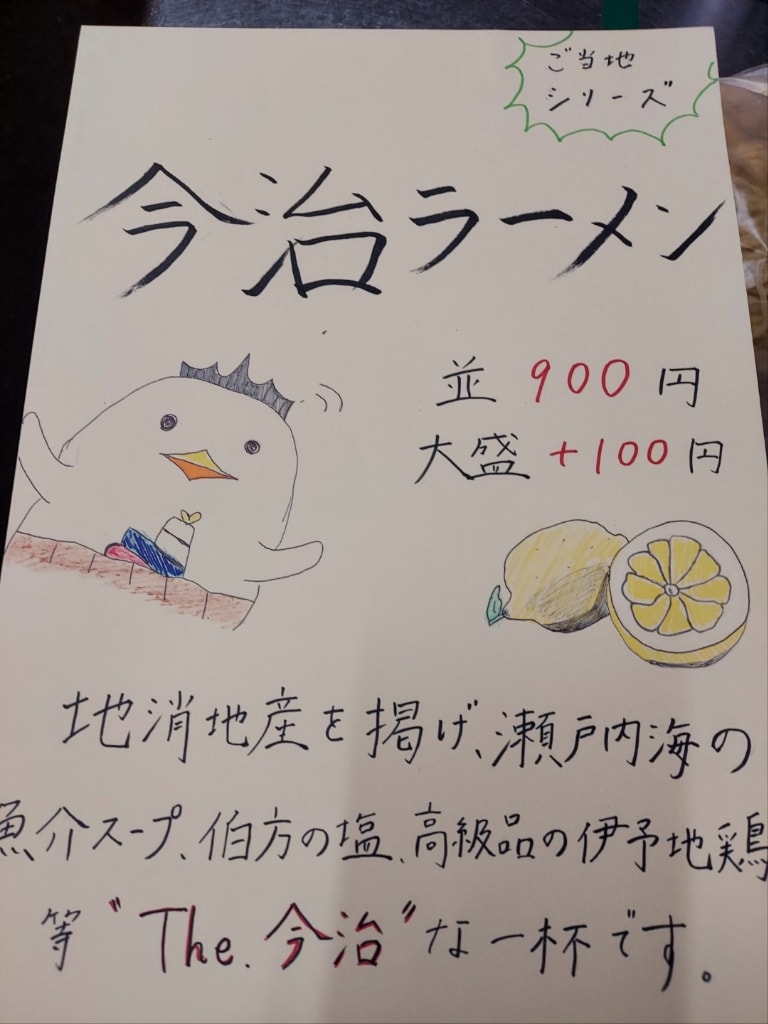 ご当地
シリーズ
今治ラーメン
並 900円
大盛 +100円
地消地産を掲げ、瀬戸内海の
魚介スープ、伯方の塩、高級品の伊予地鶏
等〝The.今治〟な一杯です。